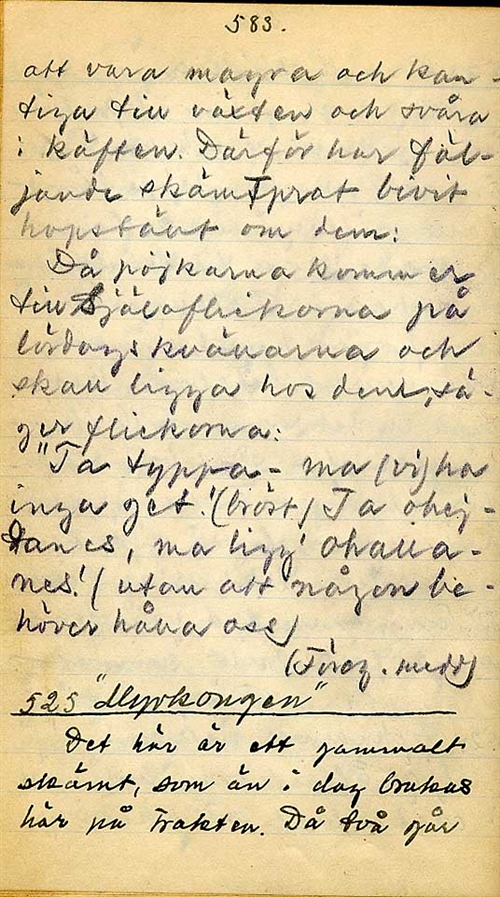 583.
att vara magra och kan-
tiga till växten och svåra
i käften. Därför har föl-
jande skämtprat blivit
hopstävt om dem:
Då pojkarna kommer
till Själaflickorna på
lördagskvällarna och
skall ligga hos dem, sä-
ger flickorna:
"Ta typpa - ma (vi) ha
inga get! (bröst) Ta ohej-
danes, ma ligg' ohålla-
nes! (utan att någon be-
höver hålla oss)
(Föreg. medd)
525 "Myrkongen"
Det här är ett gammalt
skämt, som än i dag brukas
här på trakten. Då två går